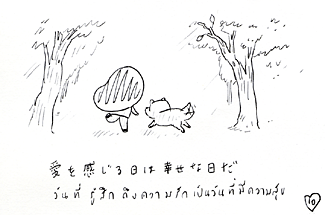 愛を感じる日は幸せな日だ
วันที่ รู้สึก ถึงความรัก เป็นวันที่มีความสุข
10